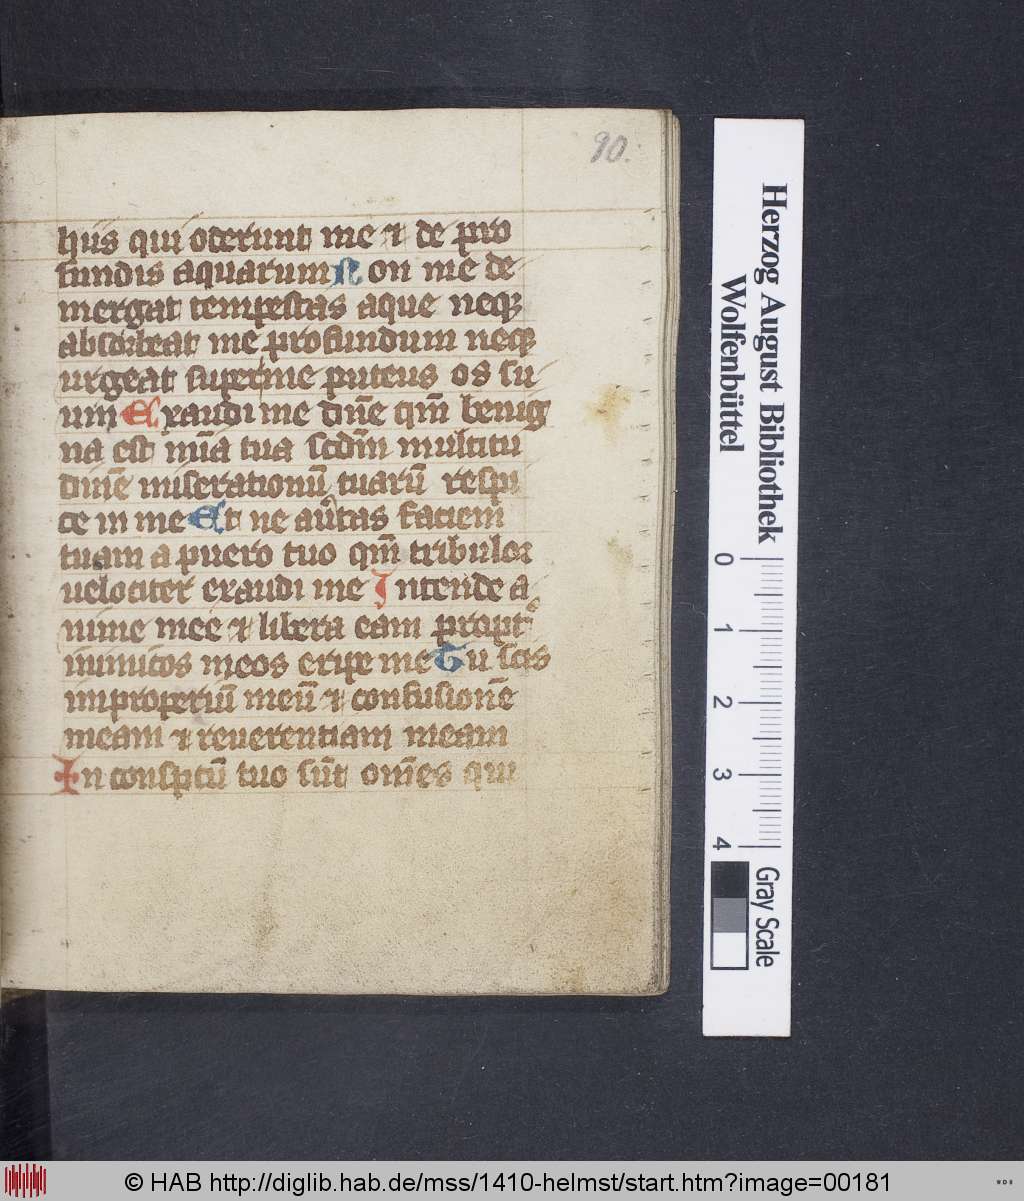 90.
hiis qui oderunt me ⁊ de pro
fundis aquarum Non me de
mergat tempestas aque neqꝫ
absorbeat me profundum neqꝫ
urgeat super me puteus os su
um Exaudi me dn̄e qm̄ benig
na est mīa tua scdm̄ multitu
dinē miserationū tuarū respi
ce in me Et ne au̾tas faciem
tuam a puero tuo qm̄ tribulor
velociter exaudi me Intende a
nime mee ⁊ libera eam propt̾
inimicos meos eripe me Tu scis
improperiū meū ⁊ confusionē
meam ⁊ reuerentiam meam
In conspectū tuo sūt om̄es qui
Herzog August Bibliothek
Wolfenbüttel
0 1 2 3 4
Gray Scale
© HAB http://diglib.hab.de/mss/1410-helmst/start.htm?image=00181